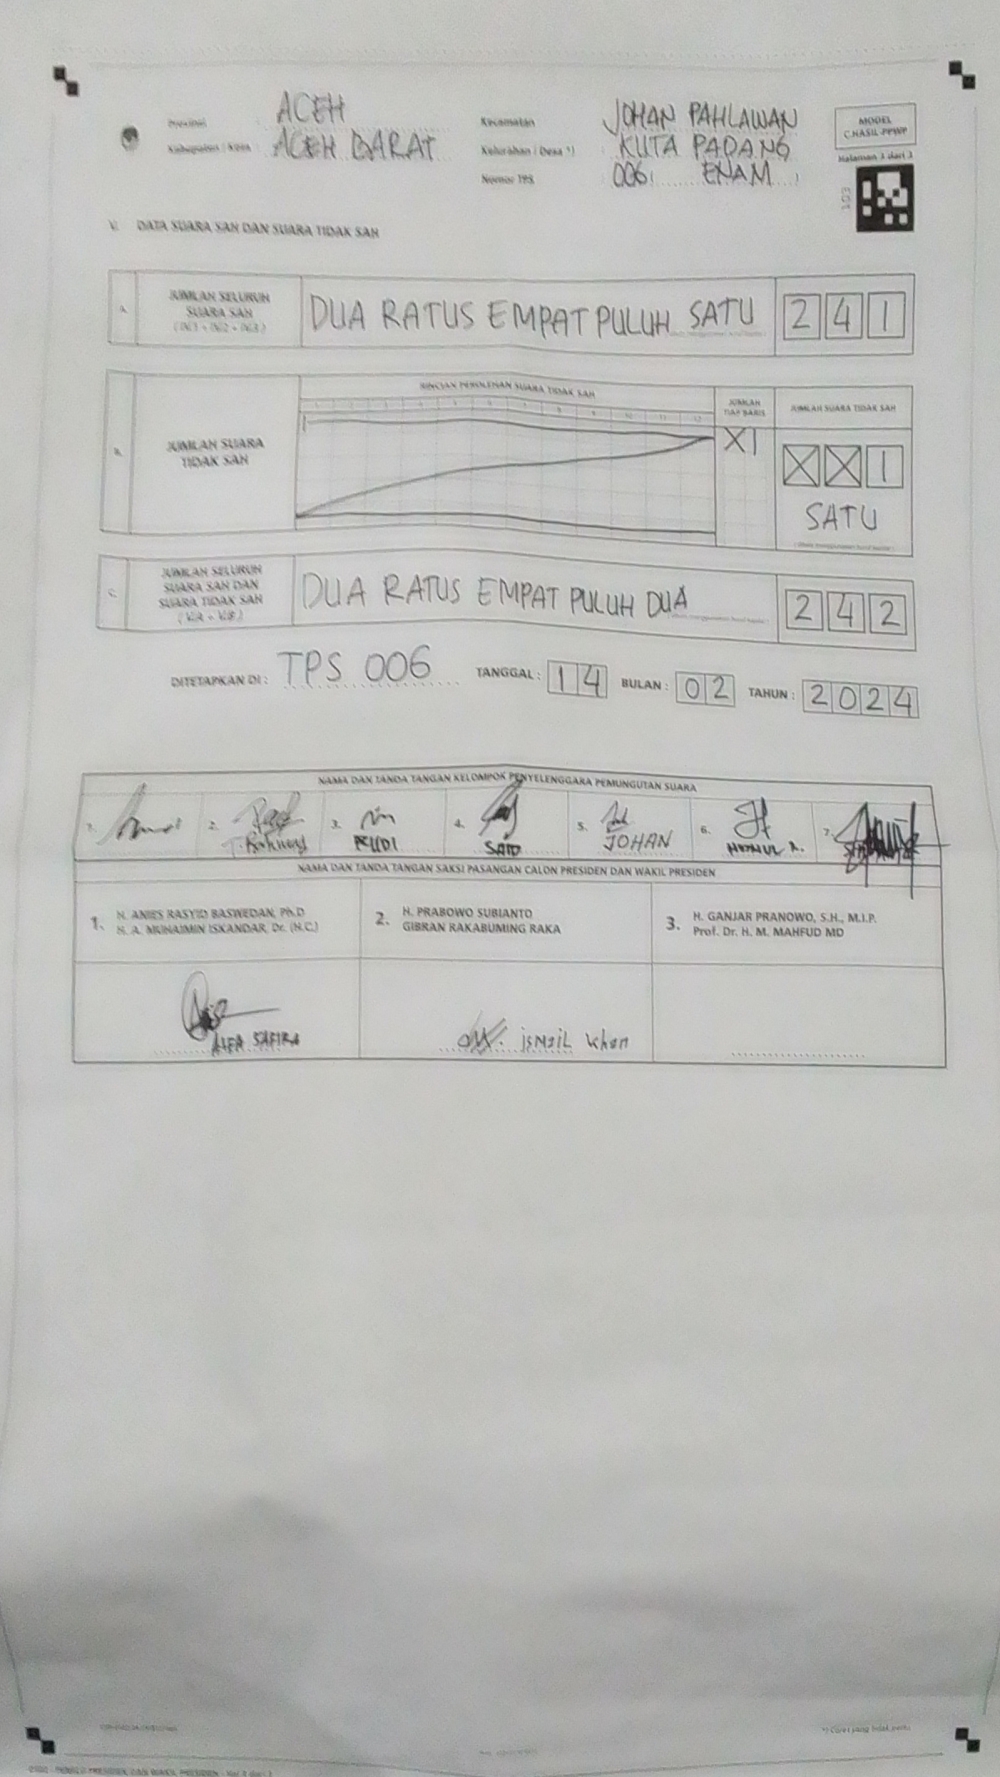 Provinsi ACEH
Kabupaten / Kota ACEH BARAT
Kecamatan JOHAN PAHLAWAN
Kelurahan / Desa *) KUTA PADANG
Nomor TPS 006 ENAM
MODEL
C.HASIL-PPWP
Halaman 3 dari 3
V. DATA SUARA SAH DAN SUARA TIDAK SAH
A. JUMLAH SELURUH
SUARA SAH
DUA RATUS EMPAT PULUH SATU 2 4 1
B. JUMLAH SUARA
TIDAK SAH
RINCIAN PEROLEHAN SUARA TIDAK SAH
1 2 3 4 5 6 7 8 9 10 11 12
JUMLAH
TIAP BARIS
X1
JUMLAH SUARA TIDAK SAH
X X 1
SATU
C. JUMLAH SELURUH
SUARA SAH DAN
SUARA TIDAK SAH
(V.A + V.B)
DUA RATUS EMPAT PULUH DUA 2 4 2
DITETAPKAN DI : TPS 006 TANGGAL : 14 BULAN : 02 TAHUN : 2024
NAMA DAN TANDA TANGAN KELOMPOK PENYELENGGARA PEMUNGUTAN SUARA
1. 2. 3. 4. 5. 6. 7.
RUDI SAID JOHAN
NAMA DAN TANDA TANGAN SAKSI PASANGAN CALON PRESIDEN DAN WAKIL PRESIDEN
1. H. ANIES RASYID BASWEDAN, Ph.D
H. A. MUHAIMIN ISKANDAR, Dr. (H.C.)
2. H. PRABOWO SUBIANTO
GIBRAN RAKABUMING RAKA
3. H. GANJAR PRANOWO, S.H., M.I.P.
Prof. Dr. H. M. MAHFUD MD
ALFA SAFIRA
ismail khan
*) Coret yang tidak perlu